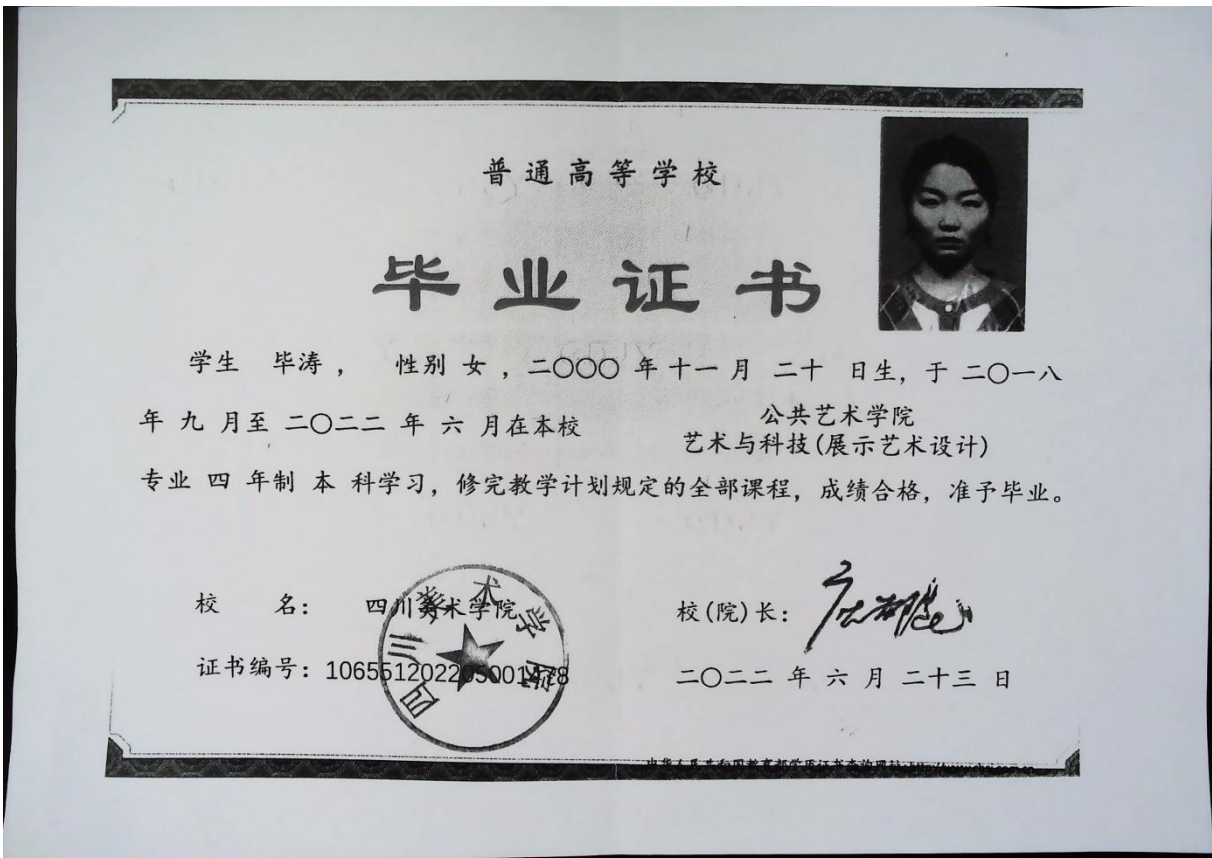 普通高等学校
毕业证书
学生 毕涛， 性别 女，二〇〇〇 年 十一 月 二十 日生，于 二〇一八
年 九 月至 二〇二二 年 六 月在本校 公共艺术学院
艺术与科技(展示艺术设计)
专业 四 年制 本 科学习，修完教学计划规定的全部课程，成绩合格，准予毕业。
校 名： 四川美术学院
校(院)长：
证书编号：
二〇二二 年 六 月 二十三 日
四川美术学院
中华人民共和国教育部学历证书查询网址